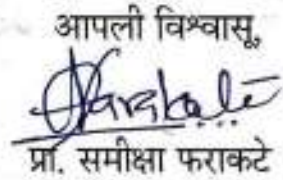 आपली विश्वासू,
प्रा. समीक्षा फराकटे